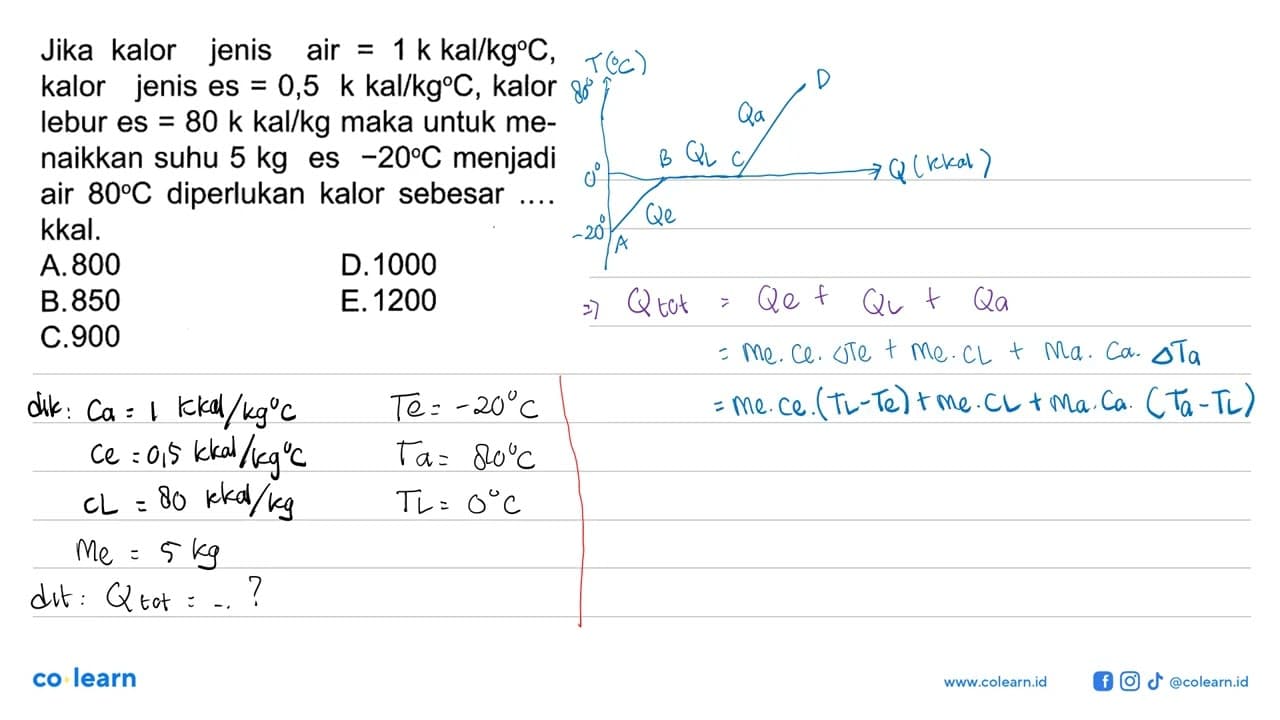 Jika kalor jenis air = 1 k kal/kg°C,
kalor jenis es = 0,5 k kal/kg°C, kalor
lebur es = 80 k kal/kg maka untuk me-
naikkan suhu 5 kg es −20°C menjadi
air 80°C diperlukan kalor sebesar ....
kkal.
A. 800 D. 1000
B. 850 E. 1200
C. 900
T(°C)
80°
D
Qa
B QL C
0°
Q (kkal)
Qe
-20°
A
=> Qtot = Qe + QL + Qa
= Me. Ce. ΔTe + Me. CL + Ma. Ca. ΔTa
= Me. Ce. (TL-Te) + Me. CL + Ma. Ca. (Ta-TL)
dik: Ca = 1 kkal/kg°C Te = -20°C
Ce = 0,5 kkal/kg°C Ta = 80°C
CL = 80 kkal/kg TL = 0°C
Me = 5 kg
dit: Qtot = ... ?
co learn
www.colearn.id @colearn.id